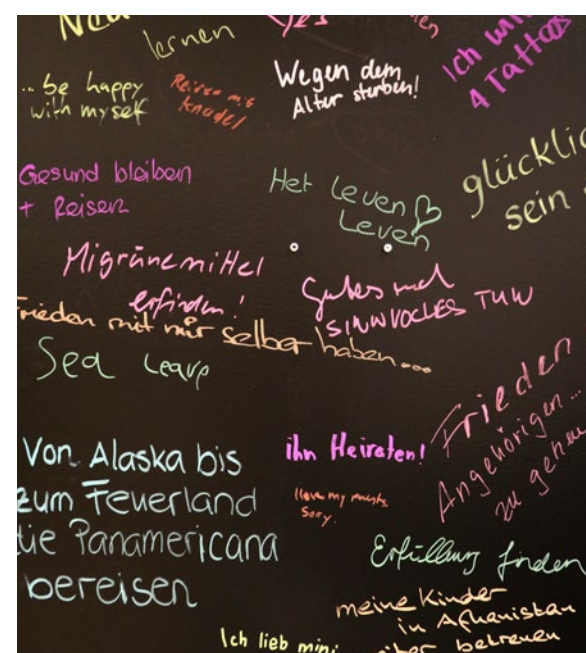 lernen
Yes
Ich will
4 Tattoos
... be happy
with myself
Reisen mit
Knödel
Wegen dem
Alter sterben!
Gesund bleiben
+ Reisen
Het Leven
Leven
glücklic
sein
Migränemittel
erfinden!
Gutes und
SINNVOLLES TUN
Frieden mit mir selber haben....
Sea
Frieden
Angehörigen...
zu gehen
Von Alaska bis
zum Feuerland
die Panamericana
bereisen
ihn Heiraten!
I love my parents
Sorry.
Erfüllung finden
meine Kinder
in Afhanistan
betreuen
Ich lieb mini